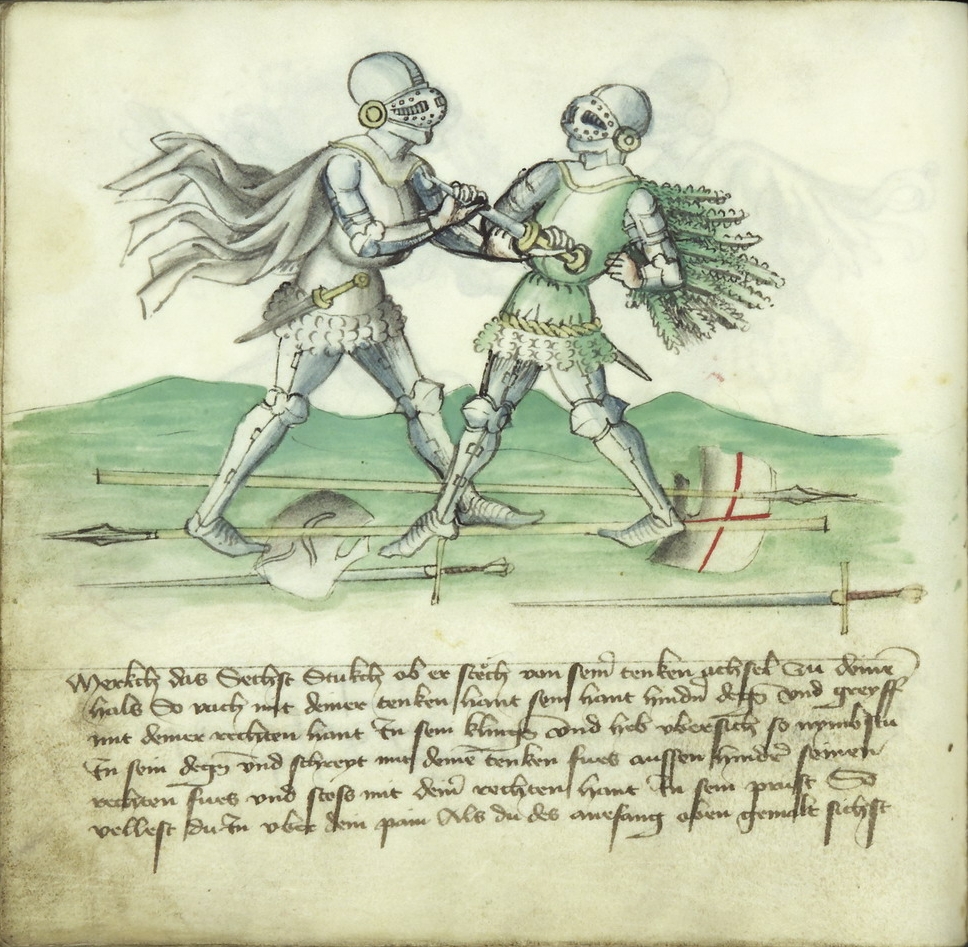 Merkch das Sechst Stukch ob er stech von sein tenken achsel Zu deinē
hals So vach mit deiner tenken hant sein hant hindñ degñ vnd greyff
mit deiner rechten hant In sein klingñ vnd heb vbersich so nymbstu
In sein degñ vnd schreyt mit deinē tenken fues aussen hinder seinen
rechten fues vnd stoss mit deiner rechten hant In sein prust So
vellest du In vber dem pain Als du des anefang oben gemalt sichst